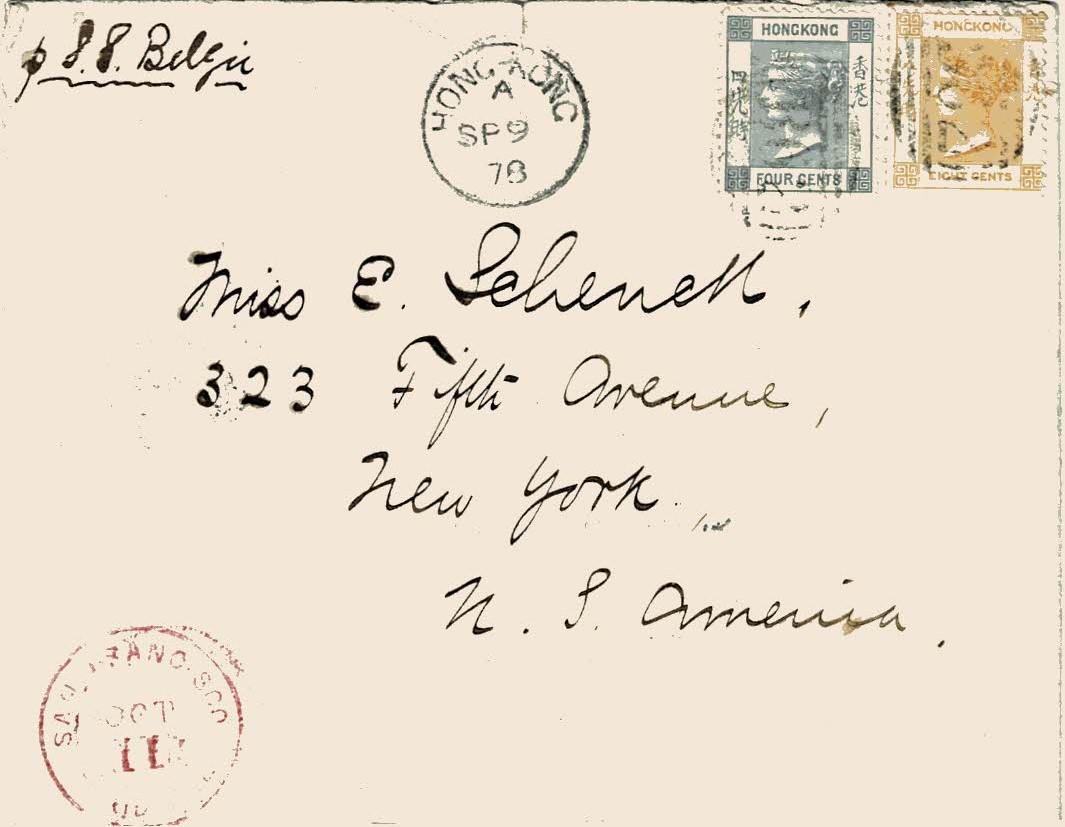 p S.S. Belgic
HONG-KONG
A
SP 9
78
HONGKONG
香港
四先時
FOUR CENTS
HONGKONG
港
EIGHT CENTS
B62
Miss E. Schenck,
323 Fifth Avenue,
New York
U. S. America.
SAN FRANCISCO
OCT
11